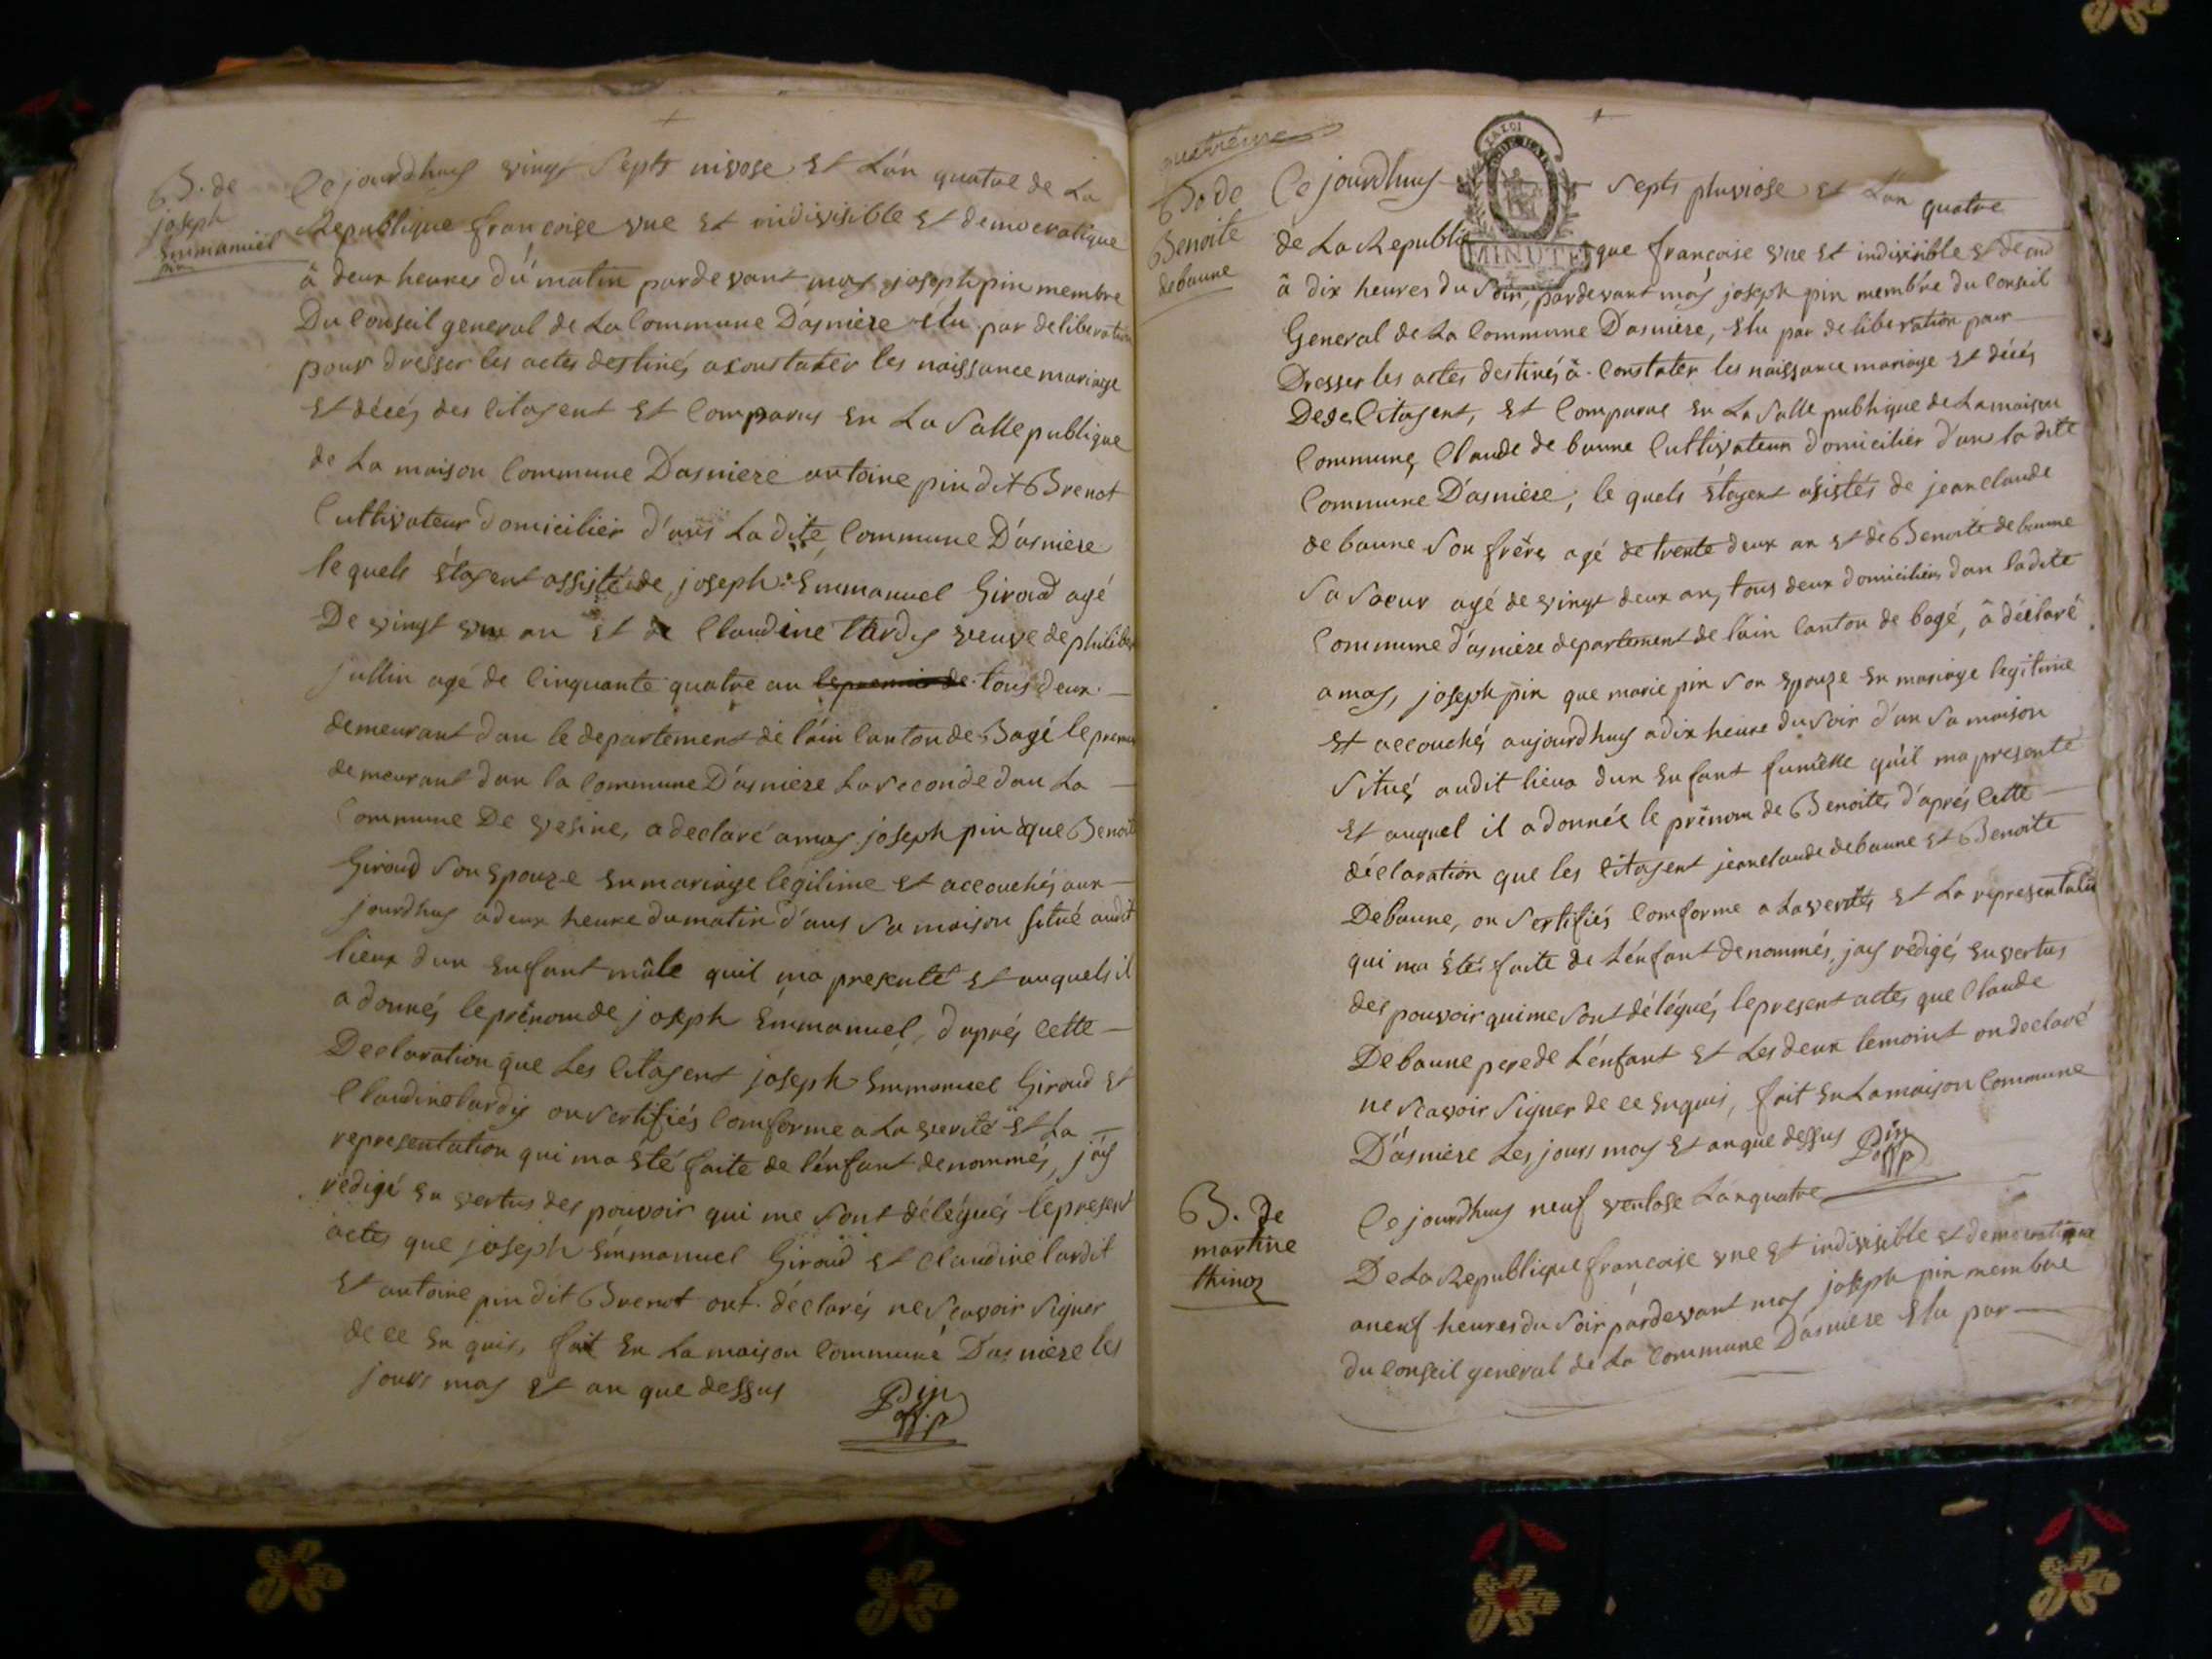 B. de
joseph
Emmanuel
pin
Ce jourdhuy vingt septs nivose et L'an quatre de La
Republique francoise une et indivisible et democratique
à deux heures du matin pardevant moy joseph pin membre
Du Conseil general de La Commune D'asniere élu par deliberation
pour dresser les actes destinés a constater les naissance mariage
et décés des Citoyent et Comparus en La Salle publique
de La maison Commune Dasniere antoine pin dit Brenot
Cultivateur domicilier d'ans La dite Commune D'asniere
le quels étoyent assistée de joseph Emmanuel Giroud agé
De vingt un an et de Claudine tardy veuve de philiber
jullin agé de Cinquante quatre an le premier de tous deux
demeurant dan le departement de l'ain Canton de Bagé le premier
demeurant dan la Commune D'asniere La seconde dan La
Commune De vesine, a declaré a moy joseph pin que Benoite
Giroud son epouze en mariage legitime et accouchés aux
jourdhuy a deux heure du matin d'ans Sa maison situé audit
lieux dun enfant mâle quil ma presenté et auquels il
a donnés le prénom de joseph Emmanuel, d'aprés Cette
Declaration que Les Citoyent joseph Emmanuel Giroud et
Claudine tardy on sertifiés Comforme a La verité et La
representation qui ma été faite de l'enfant denommés, j'ay
redigé en vertus des pouvoir qui me sont délégués le present
actes que joseph Emmanuel Giroud et Claudine tardit
et antoine pin dit Brenot ont déclarés ne scavoir signer
de ce enquis, fait en La maison Commune D'asniere les
jours moy et an que dessus
Pin
off. p
quatrieme
B. de
Benoite
debaune
MINUTE
Ce jourdhuy septs pluviose et L'an quatre
de La Republique francoise une et indivisible et demo
à dix heures du soir, pardevant moy joseph pin membre du Conseil
General de La Commune D'asniere, élu par deliberation pour
Dresser les actes destinés à Constater les naissance mariage et décés
Des Citoyent, et Comparus en La Salle publique de La maison
Commune, Claude de baune Cultivateur domicilier d'ans la dite
Commune D'asniere, le quels étoyent asistés de jean claude
de baune son frère, agé de trente deux an et de Benoite de baune
Sa soeur agé de vingt deux an, tous deux domiciliers dan la dite
Commune d'asniere departement de l'ain Canton de bagé, à déclaré
a moy, joseph pin que marie pin son epouze en mariage legitime
et accouchés aujourdhuy a dix heure du soir d'an sa maison
Situés audit lieux dun enfant fumelle qu'il ma presenté
et auquel il a donnée le prénom de Benoite, d'aprés Cette
déclaration que les Citoyent jean claude debaune et Benoite
De baune, on sertifiés Comforme a La verités et La representation
qui ma étés faite de L'enfant denommés, jay rédigés en vertus
des pouvoir qui me sont délégués le present actes que Claude
De baune pere de L'enfant et Les deux temoint on declaré
ne scavoir signer de ce enquis, fait en La maison Commune
D'asniere Les jours moy et an que dessus
Pin
off p
B. de
martine
thinoz
Ce jourdhuy neuf ventose L'an quatre
De La Republique francoise une et indivisible et democratique
a neuf heures du soir pardevant moy joseph pin membre
du Conseil general de La Commune D'asniere élu par